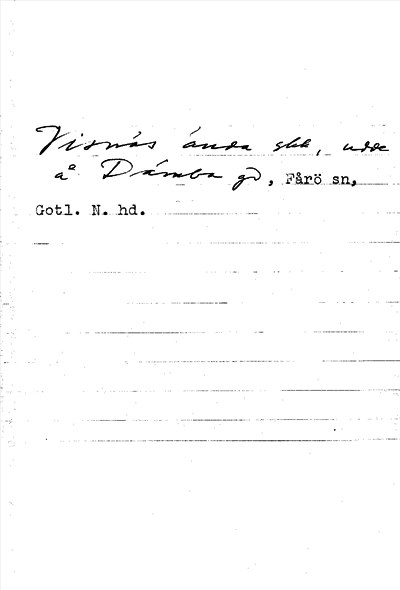 Visnäs ända skk, udde
å Dämba gd, Fårö sn,
Gotl. N. hd.